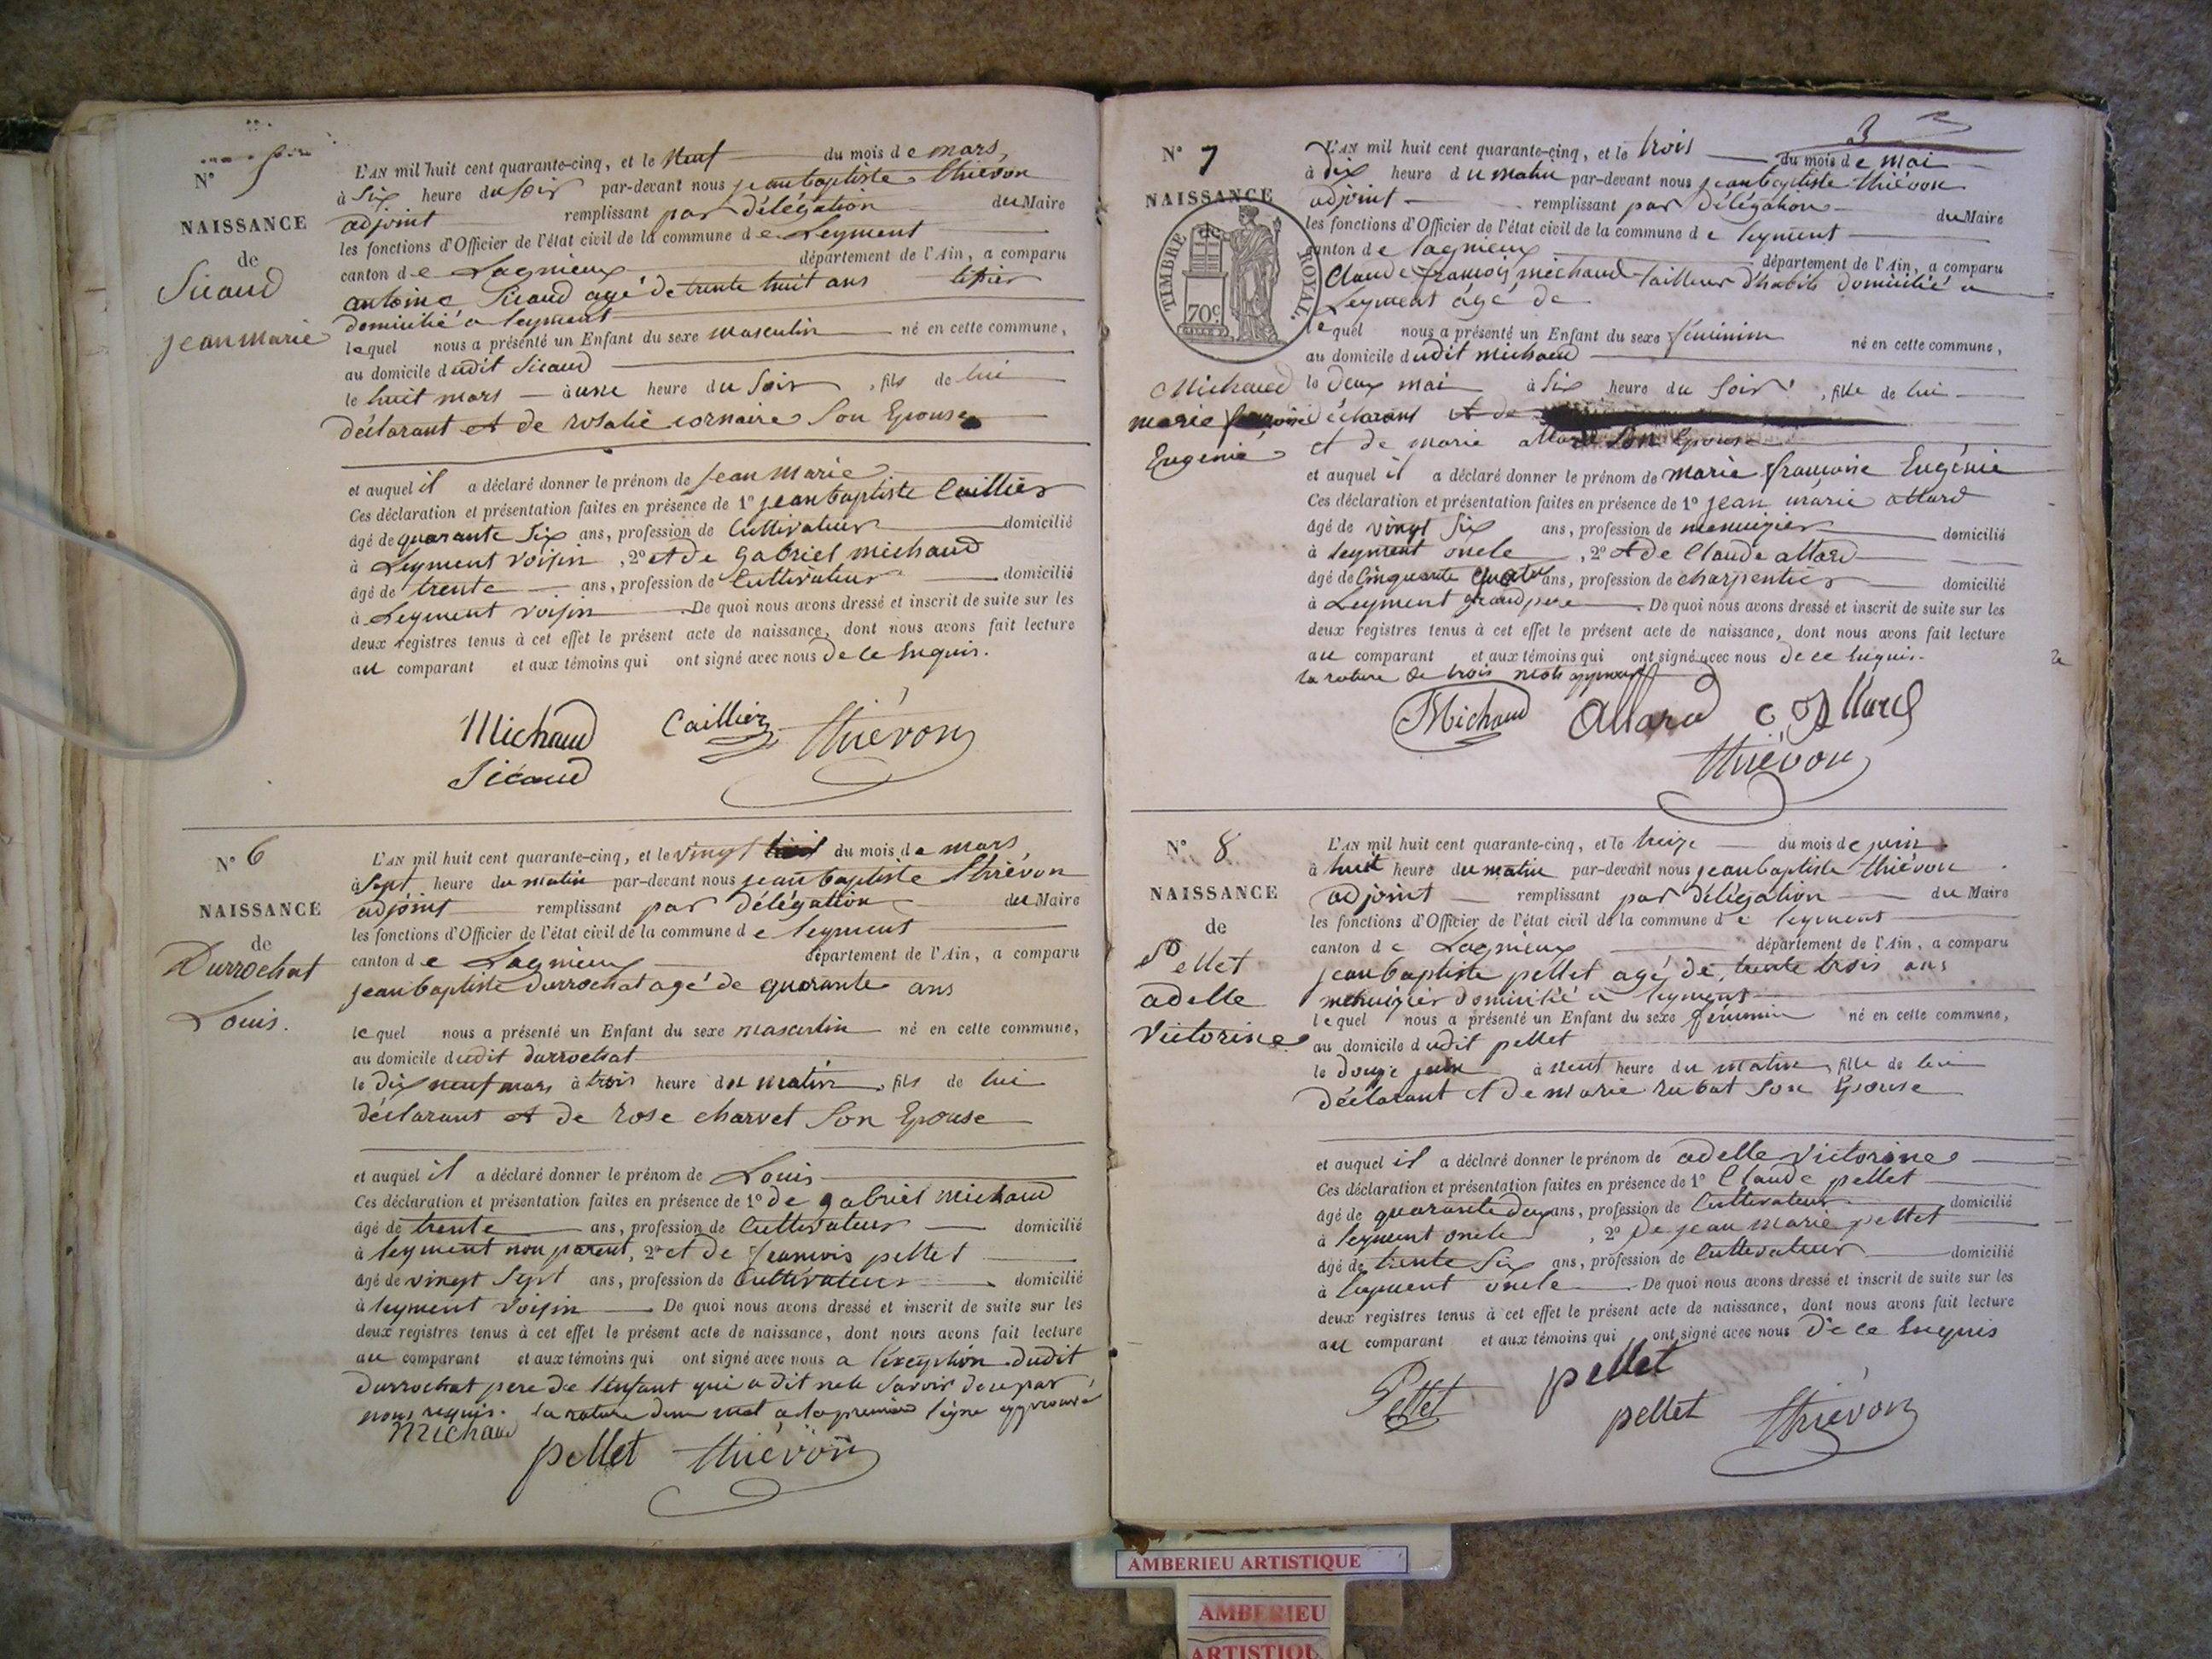 N° 5
NAISSANCE
de
Sicaud
jean marie
L'AN mil huit cent quarante-cinq, et le neuf du mois de mars,
à six heure du soir par-devant nous jean baptiste thiévon
adjoint remplissant par délégation du Maire
les fonctions d'Officier de l'état civil de la commune de Leyment
canton de Lagnieux département de l'Ain, a comparu
antoine Sicaud agé de trente huit ans
domicilié a leyment
lequel nous a présenté un Enfant du sexe masculin né en cette commune,
au domicile dudit Sicaud
le huit mars à une heure du soir, fils de lui
déclarant et de rosalie cornaire son Epouse
et auquel il a déclaré donner le prénom de jean marie
Ces déclaration et présentation faites en présence de 1° jean baptiste Caillier
âgé de quarante six ans, profession de Cultivateur domicilié
à Leyment voisin, 2° et de gabriel michaud
âgé de trente ans, profession de Cultivateur domicilié
à Leyment voisin De quoi nous avons dressé et inscrit de suite sur les
deux registres tenus à cet effet le présent acte de naissance, dont nous avons fait lecture
au comparant et aux témoins qui ont signé avec nous de ce Enquis.
Michaud Caillier thiévon
Sicaud
N° 6
NAISSANCE
de
Durrochat
Louis.
L'AN mil huit cent quarante-cinq, et le vingt du mois de mars,
à sept heure du matin par-devant nous jean baptiste thiévon
adjoint remplissant par délégation du Maire
les fonctions d'Officier de l'état civil de la commune de leyment
canton de Lagnieux département de l'Ain, a comparu
jean baptiste durrochat agé de quarante ans
lequel nous a présenté un Enfant du sexe masculin né en cette commune,
au domicile dudit durrochat
le dix neuf mars à trois heure du matin, fils de lui
déclarant et de rose charvet son Epouse
et auquel il a déclaré donner le prénom de Louis
Ces déclaration et présentation faites en présence de 1° de gabriel michaud
âgé de trente ans, profession de Cultivateur domicilié
à leyment non parent, 2° et de francois pellet
âgé de vingt sept ans, profession de Cultivateur domicilié
à leyment voisin De quoi nous avons dressé et inscrit de suite sur les
deux registres tenus à cet effet le présent acte de naissance, dont nous avons fait lecture
au comparant et aux témoins qui ont signé avec nous a l'exception dudit
durrochat pere de l'enfant qui a dit ne le savoir de ce par
nous requis. la rature d'un mot a la premiere ligne approuvé
Michaud pellet thiévon
3
N° 7
NAISSANCE
de
TIMBRE ROYAL.
70c
Michaud
marie francoise
Eugenie
L'AN mil huit cent quarante-cinq, et le trois du mois de mai
à dix heure du matin par-devant nous jean baptiste thiévon
adjoint remplissant par délégation du Maire
les fonctions d'Officier de l'état civil de la commune de leyment
canton de lagnieux département de l'Ain, a comparu
Claude francois michaud tailleur d'habits domicilié a
Leyment âgé de
lequel nous a présenté un Enfant du sexe féminin né en cette commune,
au domicile dudit michaud
le deux mai à six heure du soir, fille de lui
déclarant et de
et de marie allard son Epouse
et auquel il a déclaré donner le prénom de marie francoise Eugénie
Ces déclaration et présentation faites en présence de 1° jean marie allard
âgé de vingt six ans, profession de menuizier domicilié
à leyment oncle, 2° et de Claude allard
âgé de Cinquante quatre ans, profession de charpentier domicilié
à Leyment grand pere De quoi nous avons dressé et inscrit de suite sur les
deux registres tenus à cet effet le présent acte de naissance, dont nous avons fait lecture
au comparant et aux témoins qui ont signé avec nous de ce Enquis.
la rature de trois mots approuvé
Michaud Allard C Allard
thiévon
N° 8
NAISSANCE
de
Pellet
adelle
Victorine
L'AN mil huit cent quarante-cinq, et le treize du mois de juin
à huit heure du matin par-devant nous jean baptiste thiévon
adjoint remplissant par délégation du Maire
les fonctions d'Officier de l'état civil de la commune de leyment
canton de Lagnieux département de l'Ain, a comparu
jean baptiste pellet agé de trente trois ans
menuizier domicilié a leyment
lequel nous a présenté un Enfant du sexe féminin né en cette commune,
au domicile dudit pellet
le douze juin à neuf heure du matin, fille de lui
déclarant et de marie rubat son Epouse
et auquel il a déclaré donner le prénom de adelle victorine
Ces déclaration et présentation faites en présence de 1° Claude pellet
âgé de quarante deux ans, profession de Cultivateur domicilié
à leyment oncle, 2° de jean marie pellet
âgé de trente six ans, profession de Cultivateur domicilié
à leyment oncle De quoi nous avons dressé et inscrit de suite sur les
deux registres tenus à cet effet le présent acte de naissance, dont nous avons fait lecture
au comparant et aux témoins qui ont signé avec nous de ce Enquis
Pellet pellet
pellet thiévon
AMBERIEU ARTISTIQUE
AMBERIEU
ARTISTIQU